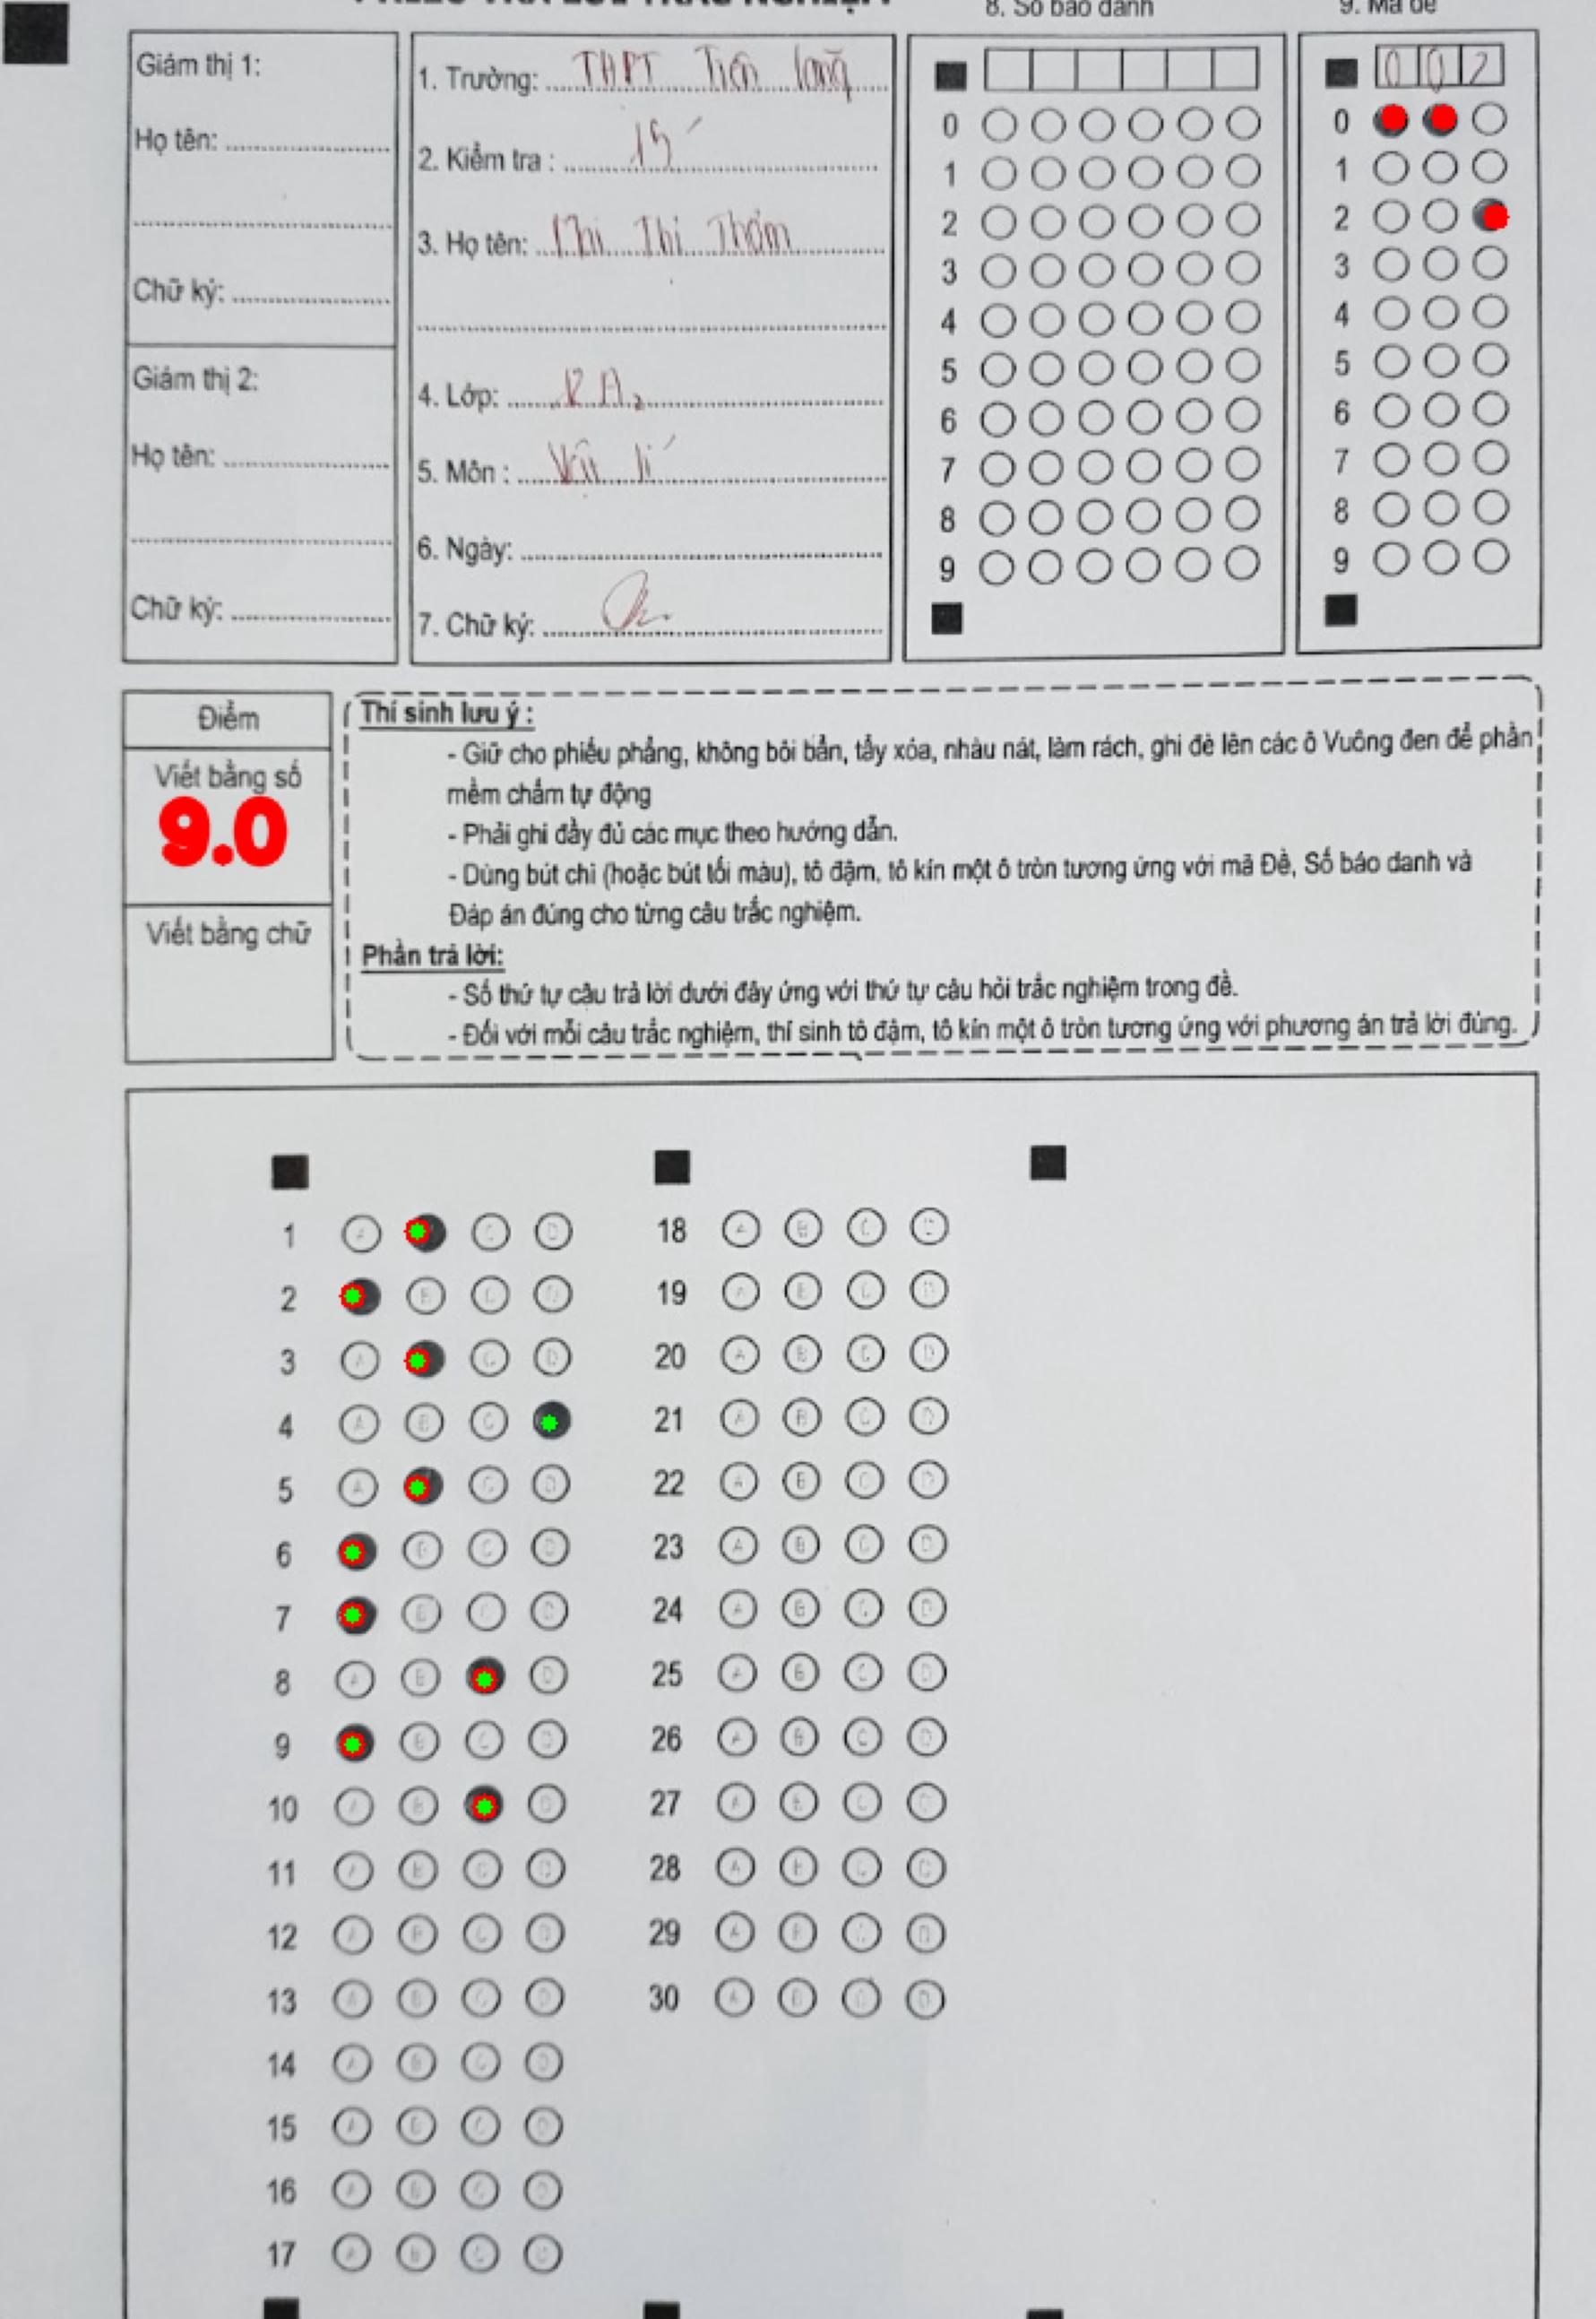 PHIẾU TRẢ LỜI TRẮC NGHIỆM
8. Số báo danh
9. Mã đề
Giám thị 1:
Họ tên:
Chữ ký:
Giám thị 2:
Họ tên:
Chữ ký:
1. Trường: THPT Tiên Lãng
2. Kiểm tra : 15'
3. Họ tên: Thị Thơm
4. Lớp:
5. Môn : Vật lí
6. Ngày:
7. Chữ ký:
0
1
2
3
4
5
6
7
8
9
0 0 2
0
1
2
3
4
5
6
7
8
9
Điểm
Viết bằng số
9.0
Viết bằng chữ
Thí sinh lưu ý :
- Giữ cho phiếu phẳng, không bôi bẩn, tẩy xóa, nhàu nát, làm rách, ghi đè lên các ô Vuông đen để phần
mềm chấm tự động
- Phải ghi đầy đủ các mục theo hướng dẫn.
- Dùng bút chì (hoặc bút tối màu), tô đậm, tô kín một ô tròn tương ứng với mã Đề, Số báo danh và
Đáp án đúng cho từng câu trắc nghiệm.
Phần trả lời:
- Số thứ tự câu trả lời dưới đây ứng với thứ tự câu hỏi trắc nghiệm trong đề.
- Đối với mỗi câu trắc nghiệm, thí sinh tô đậm, tô kín một ô tròn tương ứng với phương án trả lời đúng.
1 A C D
2 B C D
3 A C D
4 A B C
5 A C D
6 B C D
7 B C D
8 A B D
9 B C D
10 A B D
11 A B C D
12 A B C D
13 A B C D
14 A B C D
15 A B C D
16 A B C D
17 A B C D
18 A B C D
19 A B C D
20 A B C D
21 A B C D
22 A B C D
23 A B C D
24 A B C D
25 A B C D
26 A B C D
27 A B C D
28 A B C D
29 A B C D
30 A B C D